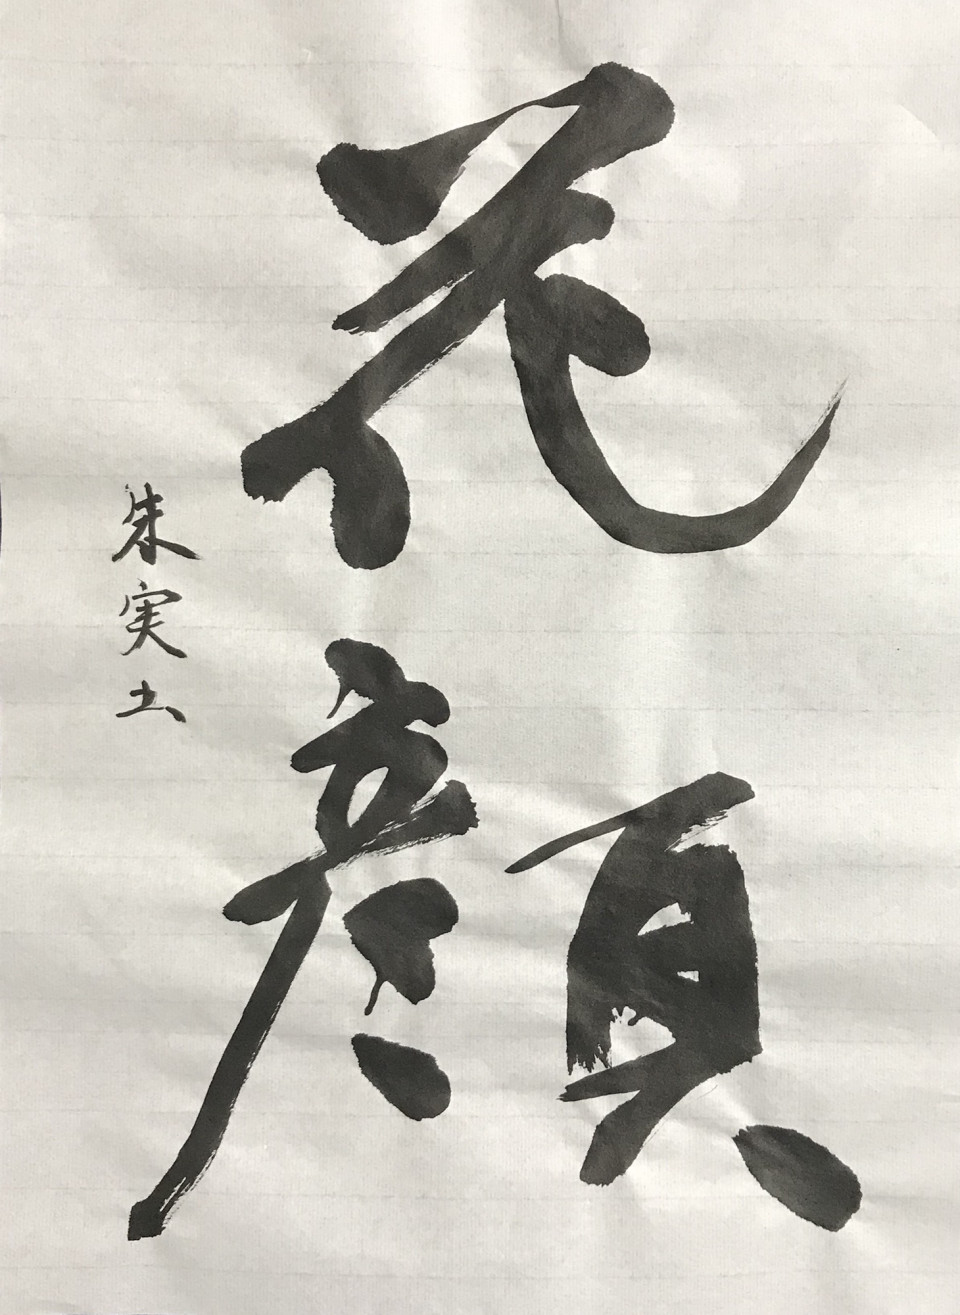 花顔
朱実土